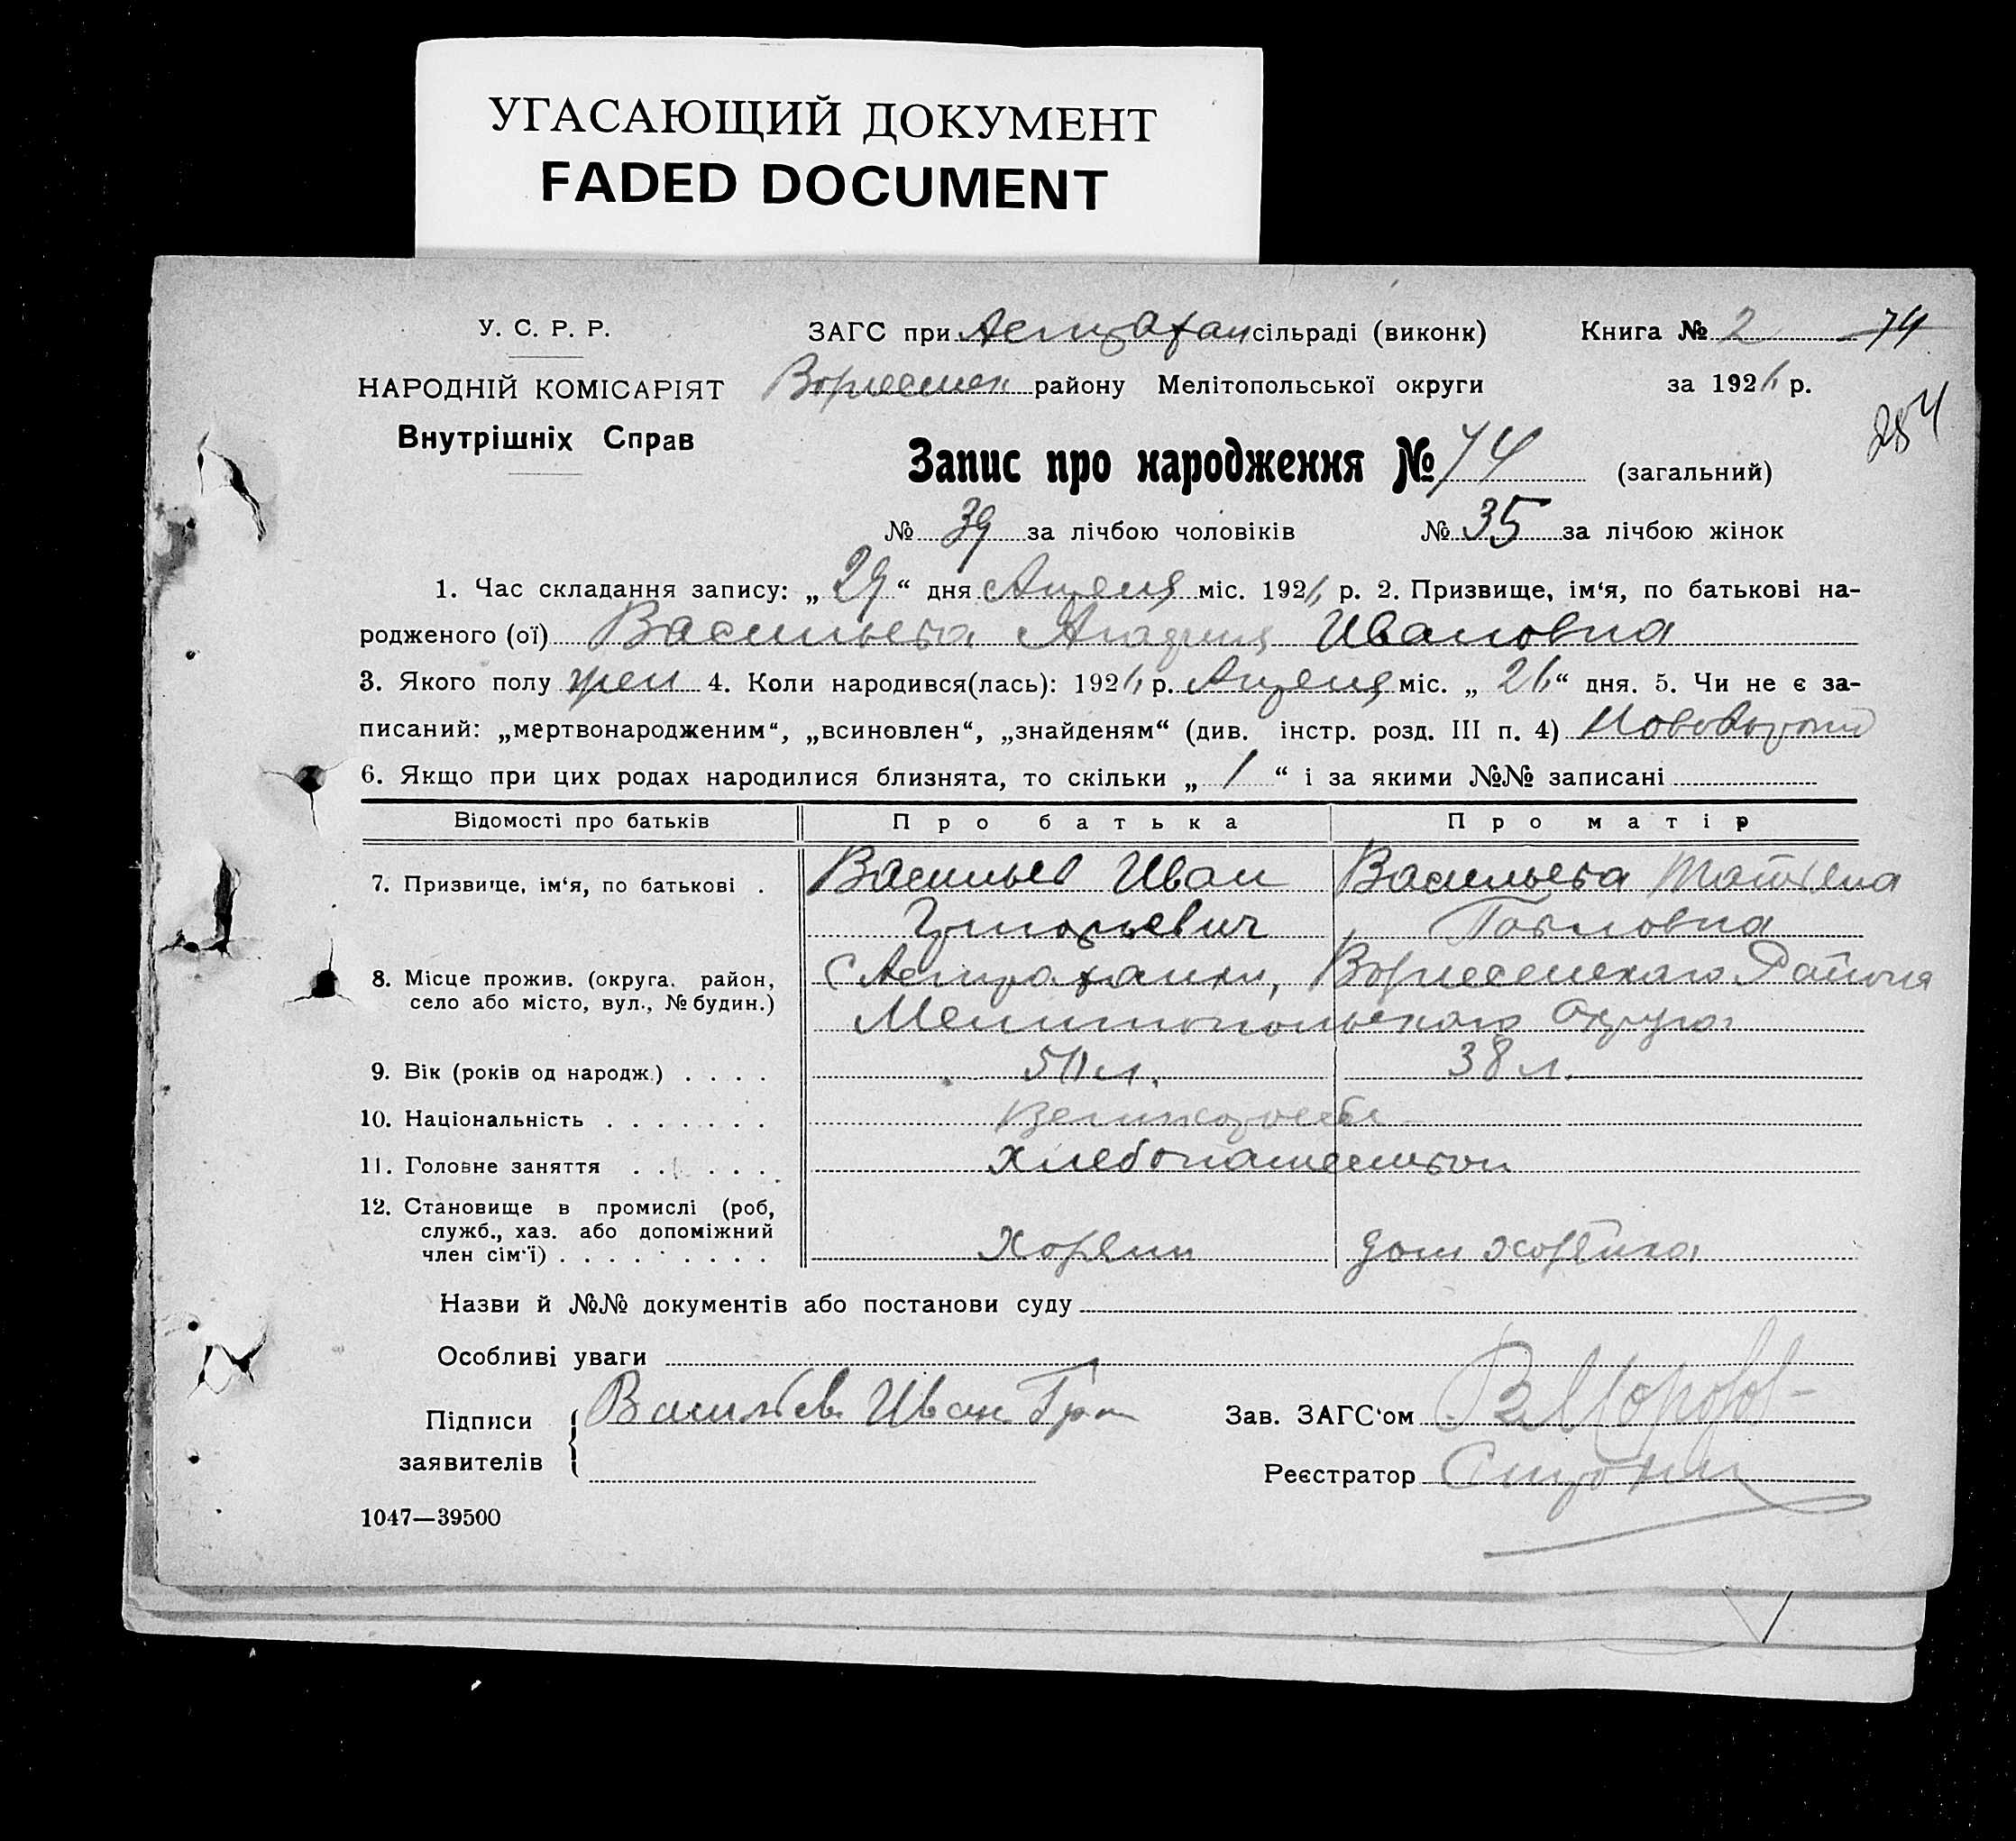 УГАСАЮЩИЙ ДОКУМЕНТ
FADED DOCUMENT
У. С. Р. Р.
НАРОДНІЙ КОМІСАРІЯТ
Внутрішніх Справ
ЗАГС при Астрахан сільраді (виконк)
Книга № 2 74
Вознесенск району Мелітопольської округи
за 1926 р.
254
Запис про народження № 74 (загальний)
№ 39 за лічбою чоловіків № 35 за лічбою жінок
1. Час складання запису: „ 29 “ дня Апреля міс. 1926 р. 2. Призвище, ім‘я, по батькові на-
родженого (ої) Васильева Ивановна
3. Якого полу жен 4. Коли народився(лась): 1926 р. Апреля міс. „ 26 “ дня. 5. Чи не є за-
писаний: „мертвонародженим“, „всиновлен“, „знайденям“ (див. інстр. розд. III п. 4)
6. Якщо при цих родах народилися близнята, то скільки „ 1 “ і за якими №№ записані
Відомості про батьків Про батька Про матір
7. Призвище, ім‘я, по батькові . Васильев Иван Васильева Татьяна
Григорьевич Павловна
8. Місце прожив. (округа. район, село або місто, вул., № будин.) С Астраханки, Вознесенскаго Района
Мелитопольскаго Округа
9. Вік (років од народж.) . . . . л. 38 л.
10. Національність . . . . . . . Великороссы
11. Головне заняття . . . . . . Хлебопашеством
12. Становище в промислі (роб,
служб., хаз. або допоміжний
член сім‘ї) . . . . . . . . . Хозяин дом хозяйка
Назви й №№ документів або постанови суду
Особливі уваги
Підписи
заявителів
Васильев Иван Гри
Зав. ЗАГС‘ом
Реєстратор
1047—39500